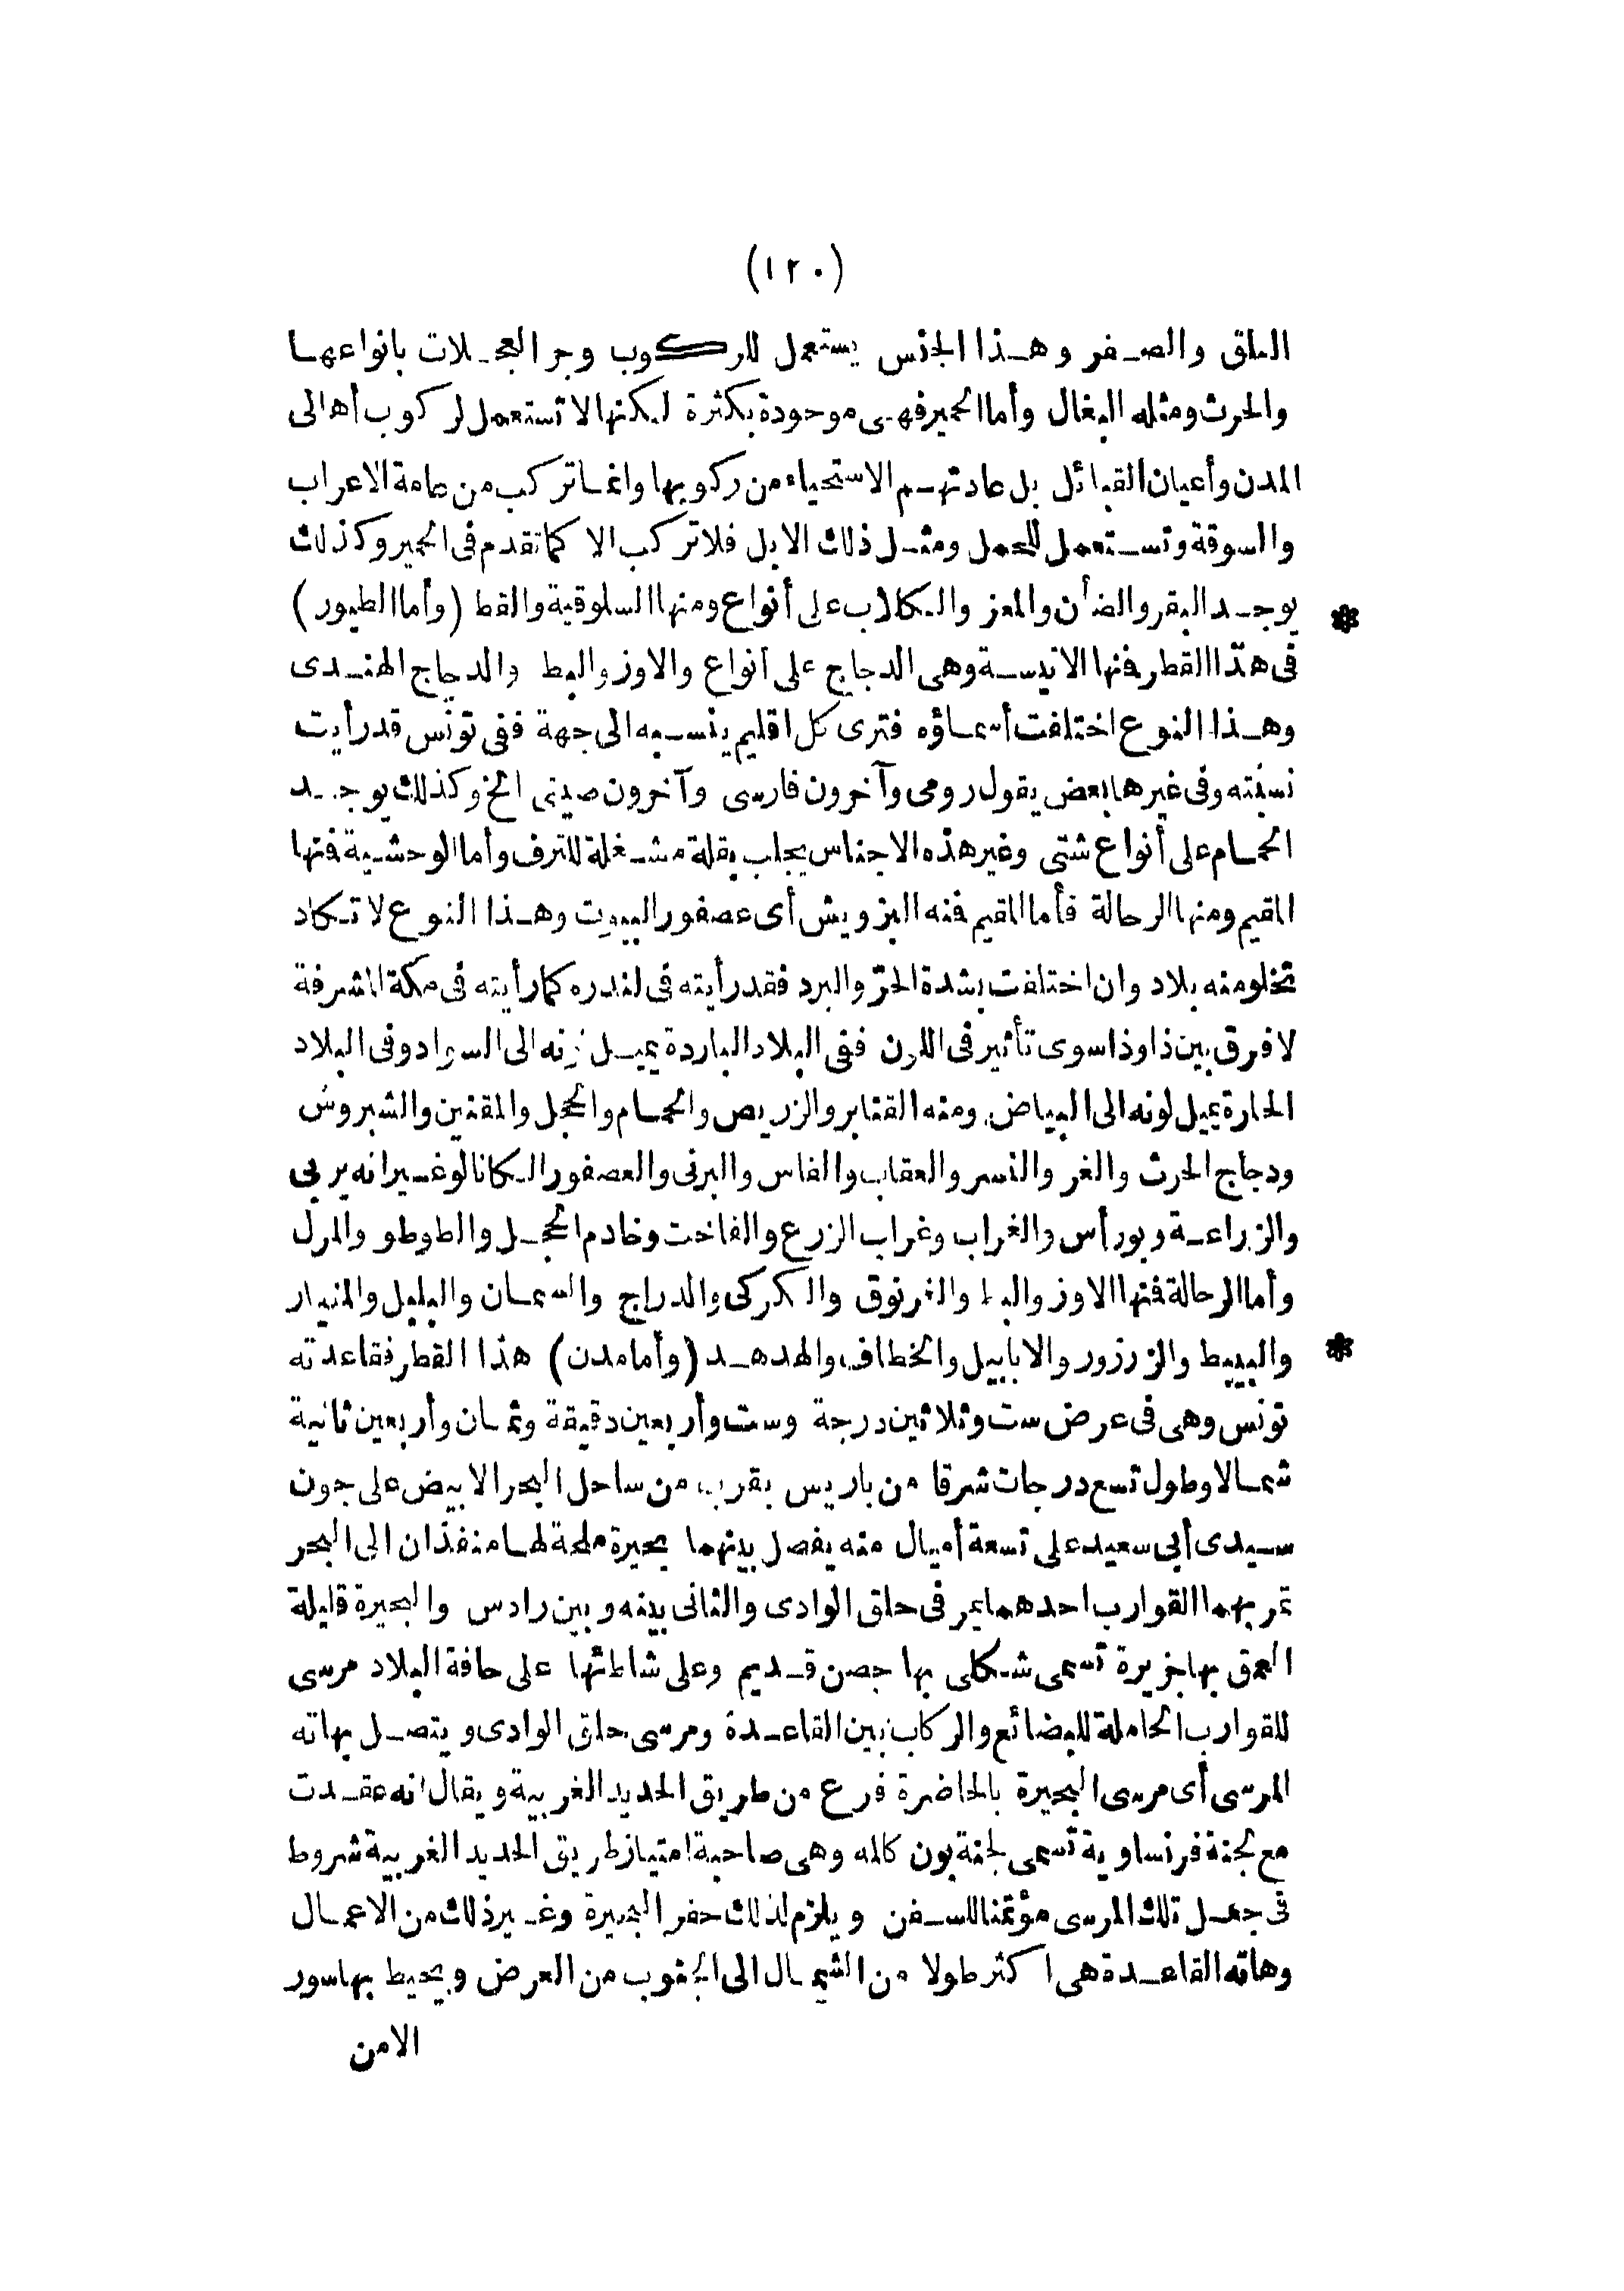 (١٢٠)
البلق والصفر وهذا الجنس يستعمل للركوب وجر العجلات بانواعها
والحرث ومثله البغال وأما الحمير فهى موجودة بكثرة لكنها لا تستعمل لركوب أهالى
المدن وأعيان القبائل بل عادتهم الاستحياء من ركوبها وانما تركب من عامة الاعراب
والسوقة وتستعمل للحمل ومثل ذلك الابل فلا تركب الا كما تقدم فى الحمير وكذلك
يوجد البقر والضأن والمعز والكلاب على أنواع ومنها السلوقية والقط (وأما الطيور) *
فى هذا القطر فنها الانيسة وهى الدجاج على أنواع والاوز والبط والدجاج الهندى
وهذا النوع اختلفت أسماؤه فترى كل اقليم ينسبه الى جهة ففى تونس قد رأيت
نسبته وفى غيرها بعض يقول رومى وآخرون فارسى وآخرون صينى الخ وكذلك يوجد
الحمام على أنواع شتى وغير هذه الاجناس يجلب بقلة مشغلة للترف وأما الوحشية فنها
المقيم ومنها الرحالة فأما المقيم فنه البزويش أى عصفور البيوت وهذا النوع لا تكاد
تخلو منه بلاد وان اختلفت بشدة الحرّ والبرد فقد رأيته فى لندره كما رأيته فى مكة المشرفة
لا فرق بين ذا وذا سوى تأثير فى اللون ففى البلاد الباردة يميل لونه الى السواد وفى البلاد
الحارة يميل لونه الى البياض ومنه القنابر والزريص والحمام والحجل والمقنين والشبروش
ودجاج الحرث والغر والنسر والعقاب والفاس والبرنى والعصفور الكانالو غير انه يربى
والزراعة وبورأس والغراب وغراب الزرع والفاخت وخادم الحجل والطوطو والمرل
وأما الرحالة فنها الاوز والبط والغرنوق والكركى والدراج والسمان والبلبل والمنيار
والبيبط والزرزور والابابيل والخطاف والهدهد (وأما مدن) هذا القطر فقاعدته *
تونس وهى فى عرض ست وثلاثين درجة وست وأربعين دقيقة وثمان وأربعين ثانية
شمالا وطول تسع درجات شرقا من باريس بقرب من ساحل البحر الابيض على جون
سيدى أبى سعيد على تسعة أميال منه يفصل بينهما بحيرة ملحة لها منفذان الى البحر
تمر بهما القوارب احدهما يمر فى حلق الوادى والثانى بينه وبين رادس والبحيرة قليلة
العمق بها جزيرة تسمى شكلى بها حصن قديم وعلى شاطئها على حافة البلاد مرسى
للقوارب الحاملة للبضائع والركاب بين القاعدة ومرسى حلق الوادى ويتصل بهاته
المرسى أى مرسى البحيرة بالحاضرة فرع من طريق الحديد الغربية ويقال انه عقدت
مع لجنة فرنساوية تسمى لجنة بون كالمه وهى صاحبة امتياز طريق الحديد الغربية شروط
فى جعل تلك المرسى مؤتمنا للسفن ويلزم لذلك حفر البحيرة وغير ذلك من الاعمال
وهاته القاعدة هى اكثر طولا من الشمال الى الجنوب من العرض ويحيط بها سور
الامن